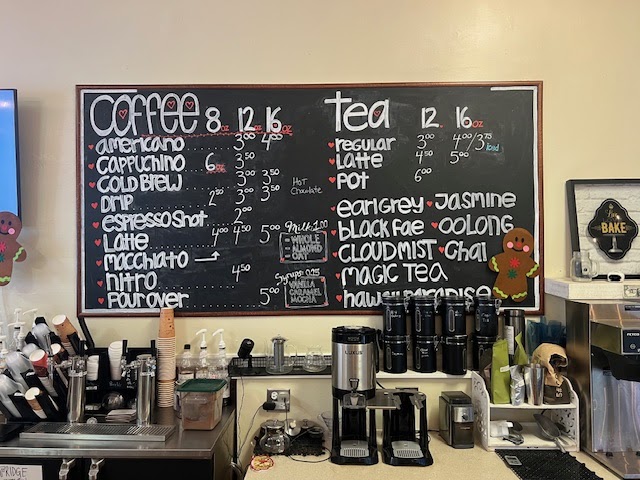 coffee 8oz 12oz 16oz
americano 3⁰⁰ 4⁰⁰
cappuchino 6oz 3⁵⁰
cold brew 3⁰⁰ 3⁵⁰
drip 2⁵⁰ 3⁰⁰ 3⁵⁰
espresso shot 2⁰⁰
Latte 4⁰⁰ 4⁵⁰ 5⁰⁰
macchiato
nitro 4⁵⁰
pourover 5⁰⁰
Hot
Chocolate
Milk 1.00
WHOLE
ALMOND
OAT
Syrups 0.25
VANILLA
CARAMEL
MOCHA
tea 12. 16oz
regular 3⁰⁰ 4⁰⁰/3⁷⁵ iced
Latte 4⁵⁰ 5⁰⁰
POT 6⁰⁰
earl grey Jasmine
black fae OOLONG
CLOUD MIST Chai
MAGIC Tea
hawaii paradise
BAKE
LUXUS
RIDGE